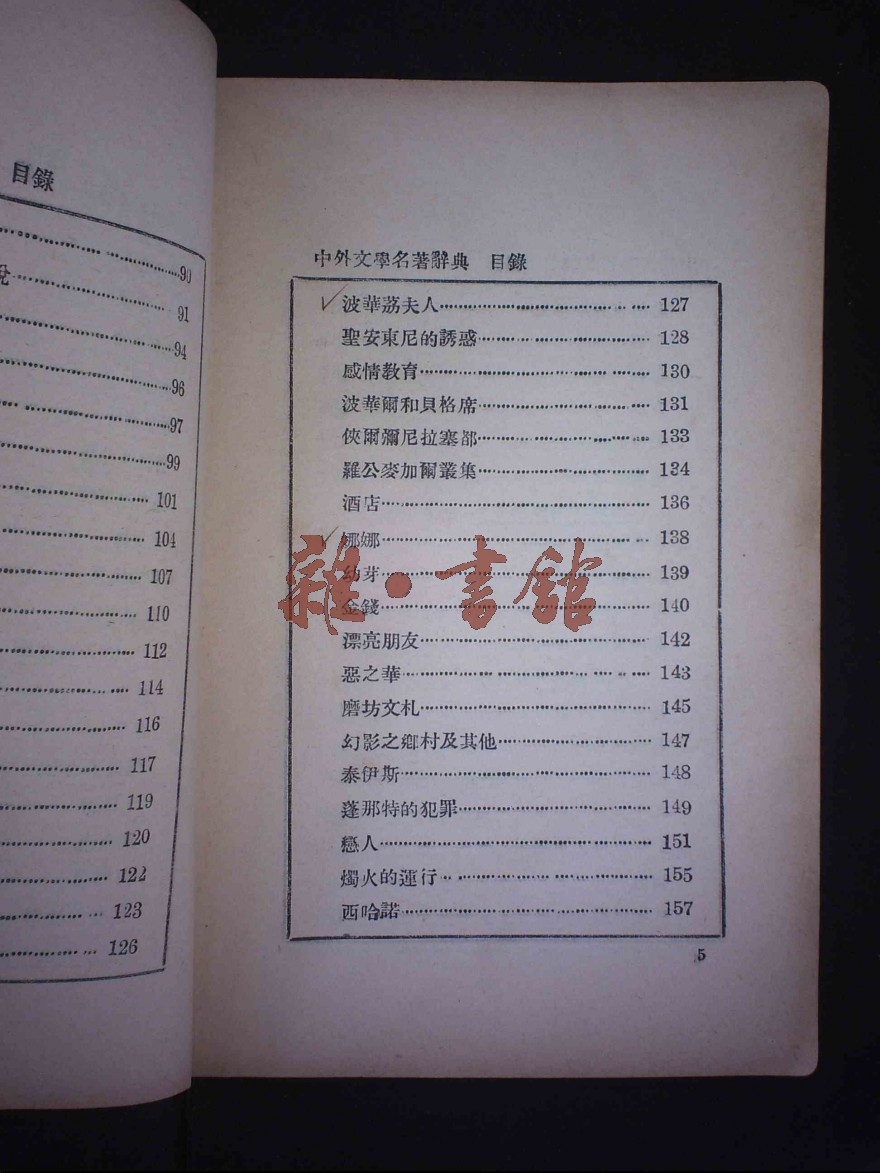 目錄
90
91
94
96
97
99
101
104
107
110
112
114
116
117
119
120
122
123
126
中外文學名著辭典 目錄
波華荔夫人 127
聖安東尼的誘惑 128
感情教育 130
波華爾和貝格席 131
俠爾彌尼拉塞都 133
羅公麥加爾叢集 134
酒店 136
娜娜 138
幼芽 139
金錢 140
漂亮朋友 142
惡之華 143
磨坊文札 145
幻影之鄉村及其他 147
泰伊斯 148
蓬那特的犯罪 149
戀人 151
燭火的運行 155
西哈諾 157
5
雜·書館